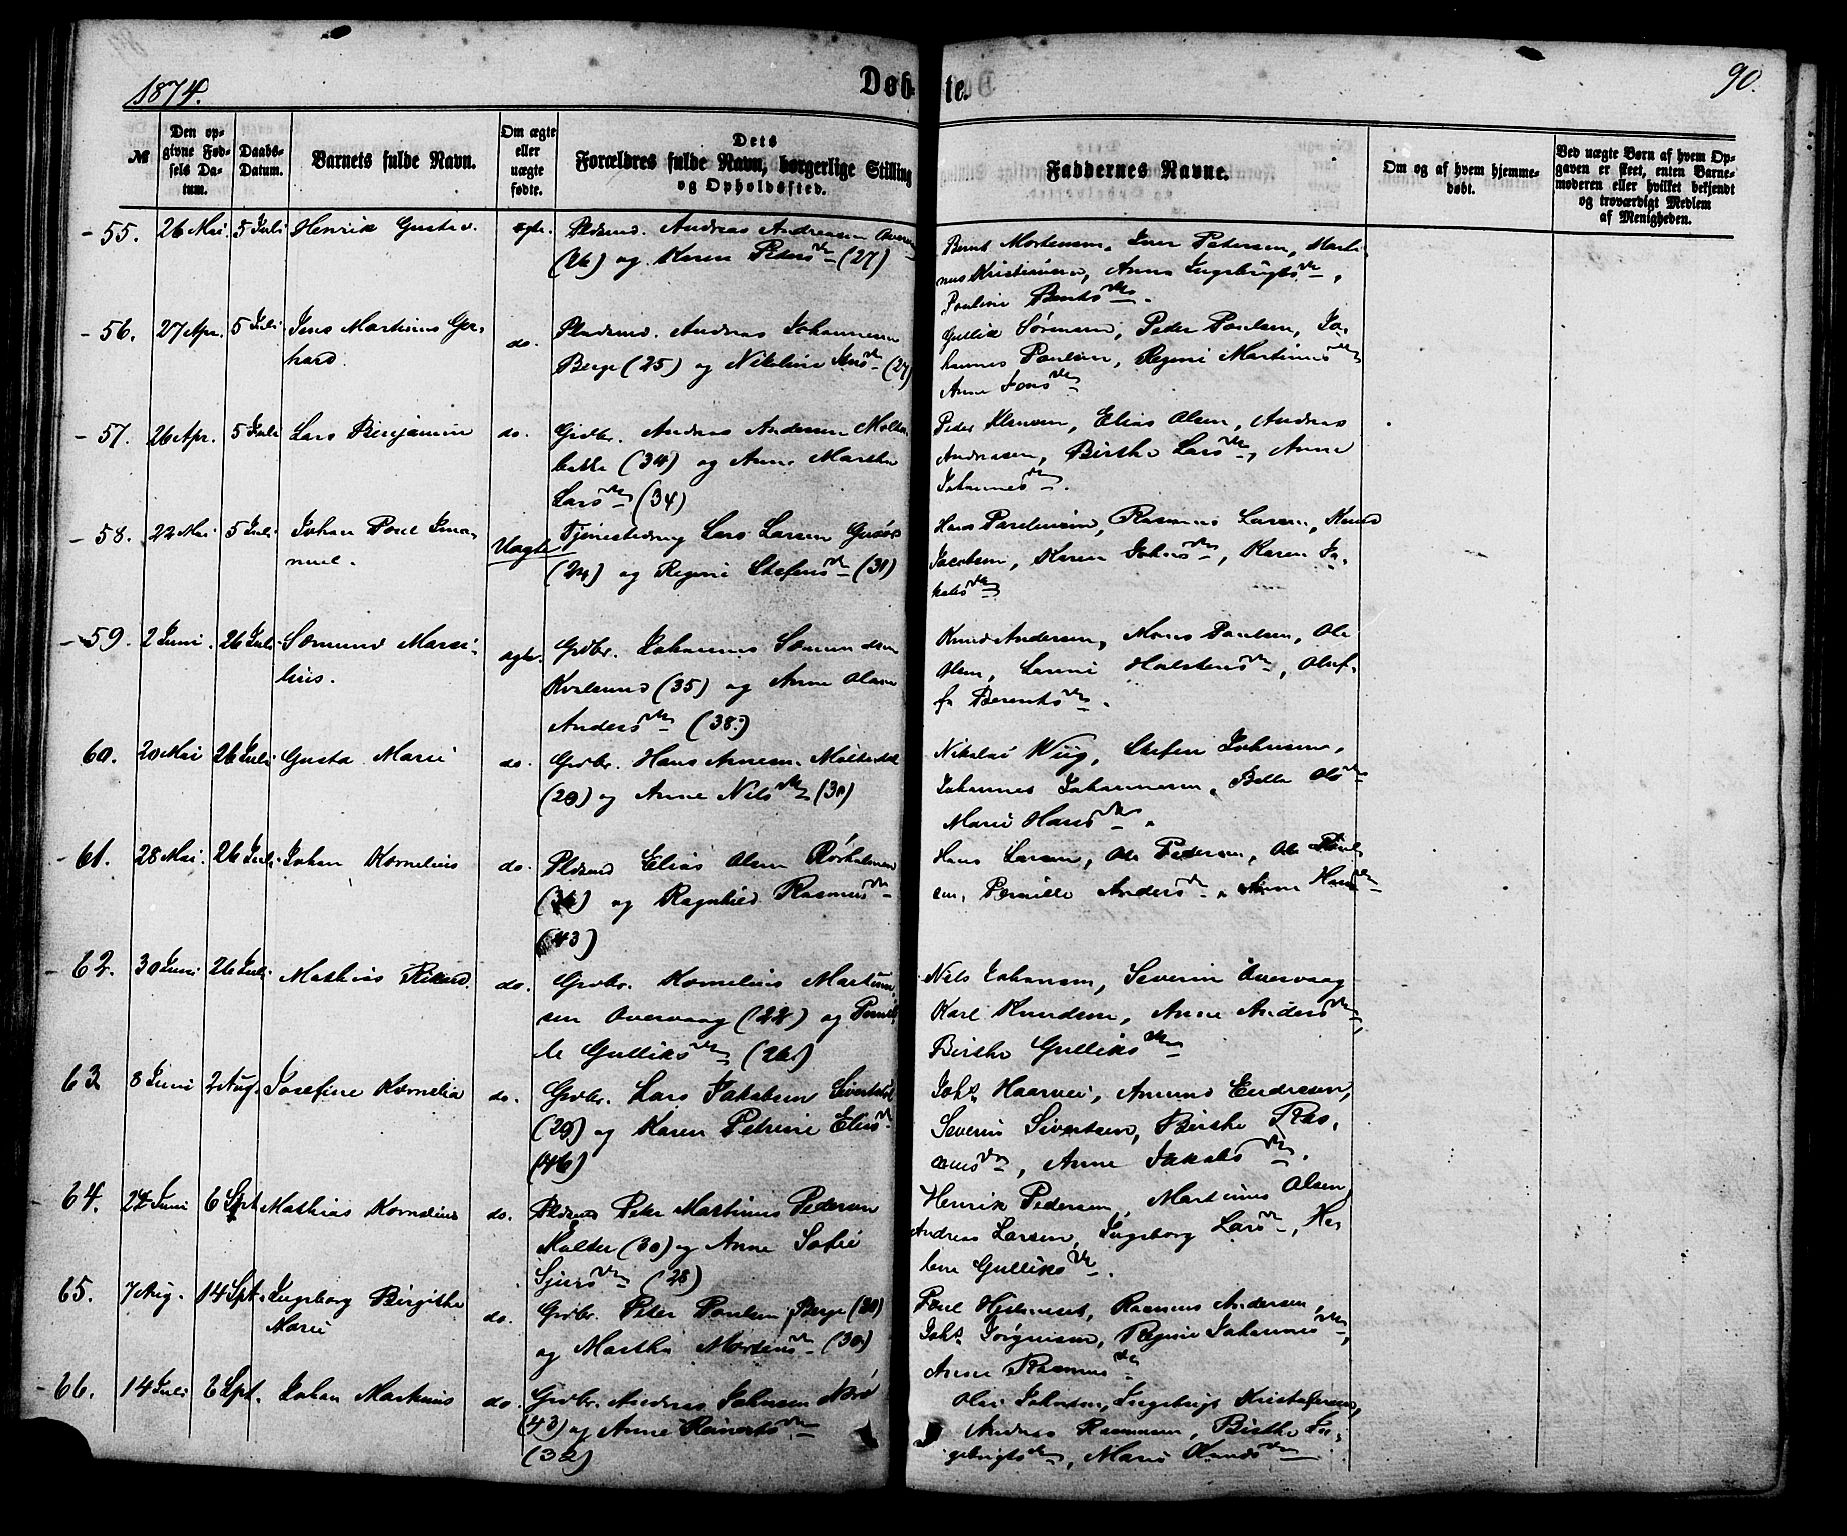 1874.
Døbte.
90.
№
Den opgivne Fødsels Datum.
Daabs-Datum.
Barnets fulde Navn.
Om ægte eller uægte fødte.
Dets Forældres fulde Navn, borgerlige Stilling og Opholdssted.
Faddernes Navne.
Om og af hvem hjemmedøbt.
Ved uægte Børn af hvem Opgaven er skeet, enten Barnemoderen eller hvilket bekjendt og troværdigt Medlem af Menigheden.
55. 26 Mai. 5 Juli Henrik Gustav. egte. Pldsmd. Andreas Andreasen
(26) og Karen Pedersdtr (27)
Bernt Mortensen, Iver Petersen, Marti-
nus Kristiansen, Anna Ingebrigtsdtr,
Pauline Berntsdtr.
56. 27 Apr. 5 Juli Jens Martinus Ger-
hard. do. Pladsmd. Andreas Johannesen
Berge (25) og Nikoline Jensdtr (27)
Gullik Sørensen, Peder Paulsen, Jo-
hannes Paulsen, Regine Martinusdtr
Anne Jonsdtr
57. 26 Apr. 5 Juli Lars Benjamin do. Grdbr. Andreas Andersen Molte-
bakke (34) og Anne Martha
Larsdtr (34)
Peder Hansen, Elias Olsen, Andreas
Andreasen, Birthe Larsdtr, Anne
Johannesdtr.
58. 22 Mai 5 Juli Johan Poul Ema-
nuel. Uægte Tjenestedreng Lars Larsen
(24) og Regine Stefensdtr (31)
Hans Paulsen, Rasmus Larsen, Knud
Jacobsen, Karen Johnsdtr, Karen Ja-
kobsdtr
59. 2 Juni. 26 Juli Sæmund Marsi-
lius. egte. Grdbr. Johannes Sæmundsen
Kvalsund (35) og Anne Olave
Andersdtr (38)
Knud Andersen, Mons Paulsen, Ole
Olsen, Larine Halstensdtr, Oluf-
fe Berentsdtr.
60. 20 Mai 26 Juli Gusta Marie do. Grdbr. Hans Arnesen
(29) og Anne Nilsdtr (31)
Nikolai Wiig, Stefen Johnsen,
Johannes Johannesen, Belle Olsdtr
Marie Hansdtr.
61. 28 Mai. 26 Juli Johan Kornelius do. Pldsmd Elias Olsen Rørholmen
(36) og Ragnhild Rasmusdtr
(43)
Hans Larsen, Ole Pedersen, Ole Poul-
sen, Pernille Andersdtr, Anne Hansdtr
62. 30 Juni 26 Juli Mathias Rikard. do. Grdbr. Kornelius Martinus-
sen Overvaag (22) og Pernil-
le Gulliksdtr (26)
Nils Johansen, Severin Overvaag
Karl Knudsen, Anne Andersdtr,
Birthe Gulliksdtr
63 8 Juni 2 Aug. Josefine Kornelia do. Grdbr. Lars Jakobsen
(29) og Karen Petrine Eliasdtr
(46)
Johs Haarvei, Amund Endresen,
Severin Sivertsen, Birthe Ras-
musdtr, Anne Jakobsdtr.
64. 24 Juni 6 Spt Mathias Kornelius do. Pldsmd Peter Martinus Pedersen
Molter (30) og Anne Sofie
Sjursdtr (28)
Henrik Pedersen, Martinus Olsen,
Andreas Larsen, Ingeborg Larsdtr, He-
lene Gulliksdtr.
65. 7 Aug. 14 Spt. Ingeborg Birgithe
Marie do. Grdbr. Peter Poulsen Berge (30)
og Martha Mortensdtr (30)
Poul Rasmus Andersen,
Johs Jørgensen, Regine Johannesdtr,
Anne Rasmusdtr
66. 14 Juli 6 Spt. Johan Martinus do. Grdbr. Andreas Johnsen
(43) og Anne Reinertsdtr
(32)
Ole Ingebrigt Kristofersen,
Andreas Rasmussen, Birthe In-
gebrigtsdtr, Marie Knudsdtr